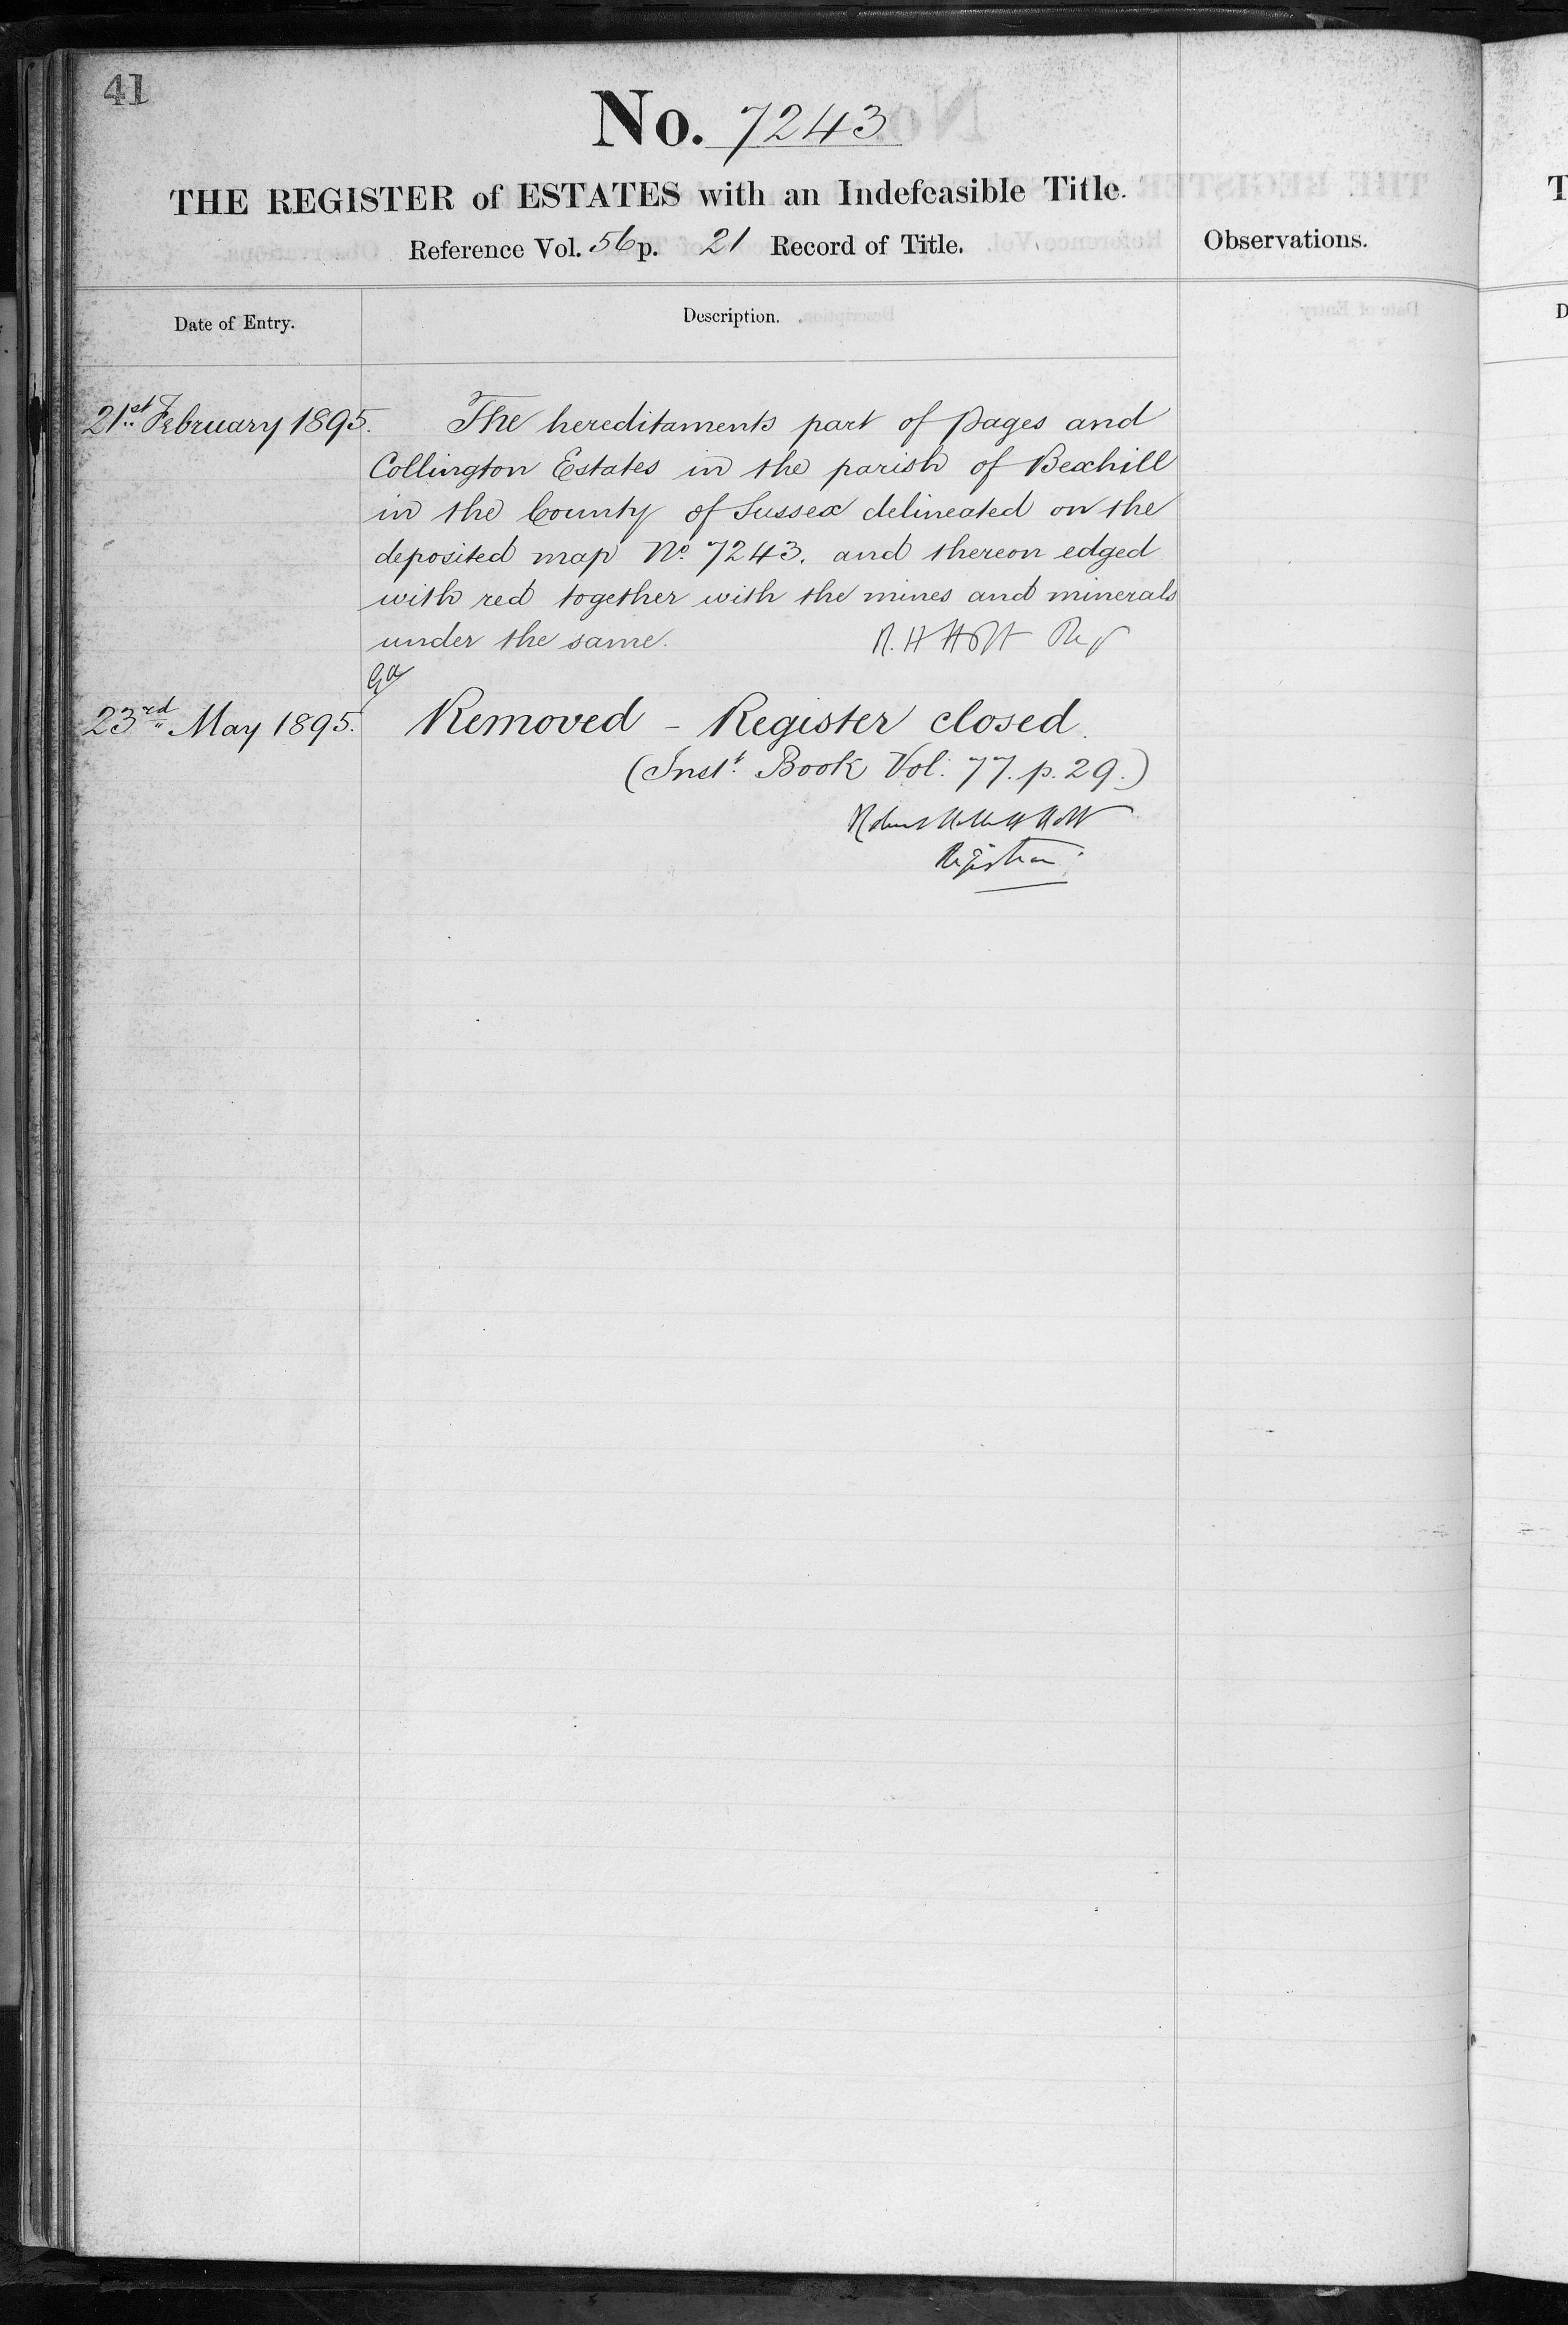 41
No. 7243
THE REGISTER of ESTATES with an Indefeasible Title.
Reference Vol. 56 p. 21 Record of Title.
Observations.
Date of Entry.
Description.
21st February 1895. The hereditaments part of Pages and
Collington Estates in the parish of Bexhill
in the County of Sussex delineated on the
deposited map No. 7243. and thereon edged
with red together with the mines and minerals
under the same. R. H Holt Reg
23rd May 1895. Removed - Register closed.
(Inst. Book Vol. 77. p. 29.)
Robert Holt
Registrar
T
D